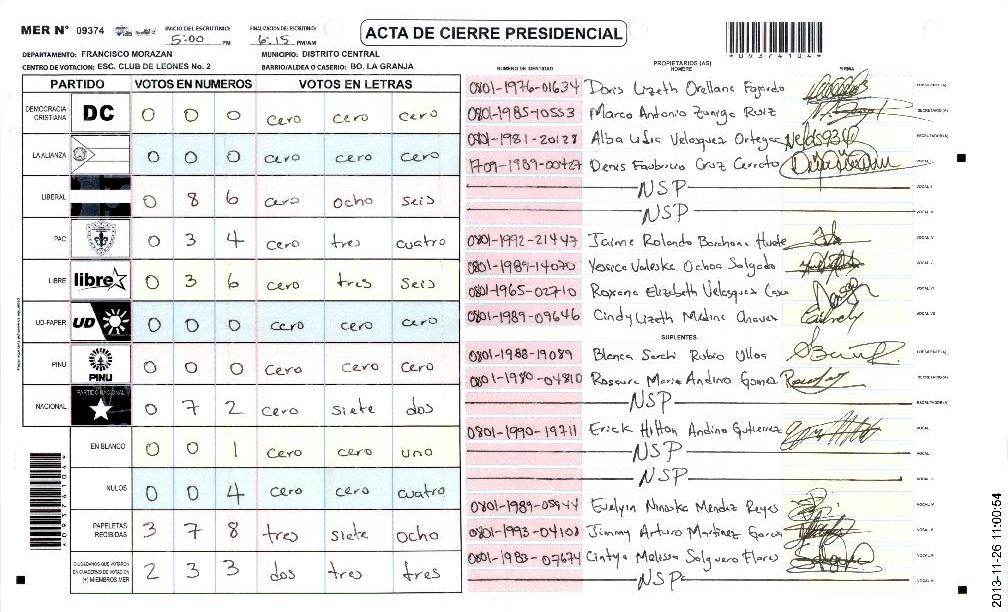 MER N° 09374
INICIO DEL ESCRUTINIO: 5:00 PM
FINALIZACION DEL ESCRUTINIO: 6:15 PM/AM
ACTA DE CIERRE PRESIDENCIAL
*09374104*
DEPARTAMENTO: FRANCISCO MORAZAN
MUNICIPIO: DISTRITO CENTRAL
CENTRO DE VOTACION: ESC. CLUB DE LEONES No. 2
BARRIO/ALDEA O CASERIO: BO. LA GRANJA
PARTIDO VOTOS EN NUMEROS VOTOS EN LETRAS
DEMOCRACIA CRISTIANA DC 0 0 0 cero cero cero
LA ALIANZA 0 0 0 cero cero cero
LIBERAL 0 8 6 cero ocho seis
PAC 0 3 4 cero tres cuatro
LIBRE libre 0 3 6 cero tres seis
UD-FAPER UD 0 0 0 cero cero cero
PINU PINU 0 0 0 cero cero cero
NACIONAL PARTIDO NACIONAL 0 7 2 cero siete dos
EN BLANCO 0 0 1 cero cero uno
NULOS 0 0 4 cero cero cuatro
PAPELETAS RECIBIDAS 3 7 8 tres siete ocho
CIUDADANOS QUE VOTARON EN CUADERNO DE VOTACION (+) MIEMBROS MER 2 3 3 dos tres tres
*09374104*
NUMERO DE IDENTIDAD PROPIETARIOS (AS) NOMBRE FIRMA
0801-1976-01634 Doris Lizeth Orellana Fajardo PRESIDENTE (A)
0801-1985-10553 Marco Antonio Zuniga Ruiz SECRETARIO (A)
0801-1981-20128 Alba Lidia Velasquez Ortega ESCRUTADOR (A)
1709-1989-00427 Denis Fabricio Cruz Cerrato VOCAL I
NSP VOCAL II
NSP VOCAL III
0801-1992-21447 Jaime Rolando VOCAL IV
0801-1989-14070 Yessica Valeska Ochoa Salgado VOCAL V
0801-1965-02710 Roxana Elizabeth Velasquez VOCAL VI
0801-1989-09646 Cindy Lizeth Medina VOCAL VII
SUPLENTES
0801-1988-19089 Blanca Rubio Ulloa PRESIDENTE (A)
0801-1980-04810 Maria Andino Gomez SECRETARIO (A)
NSP ESCRUTADOR (A)
0801-1990-19711 Erick Hilton Andino Gutierrez VOCAL
NSP VOCAL
NSP VOCAL
0801-1989-05944 Evelyin Mendez Reyes VOCAL
0801-1993-04108 Jimmy Arturo Martinez Garcia VOCAL
0801-1983-07674 Cintya Melissa Salguero Flores VOCAL
NSP VOCAL
2013-11-26 11:00:54